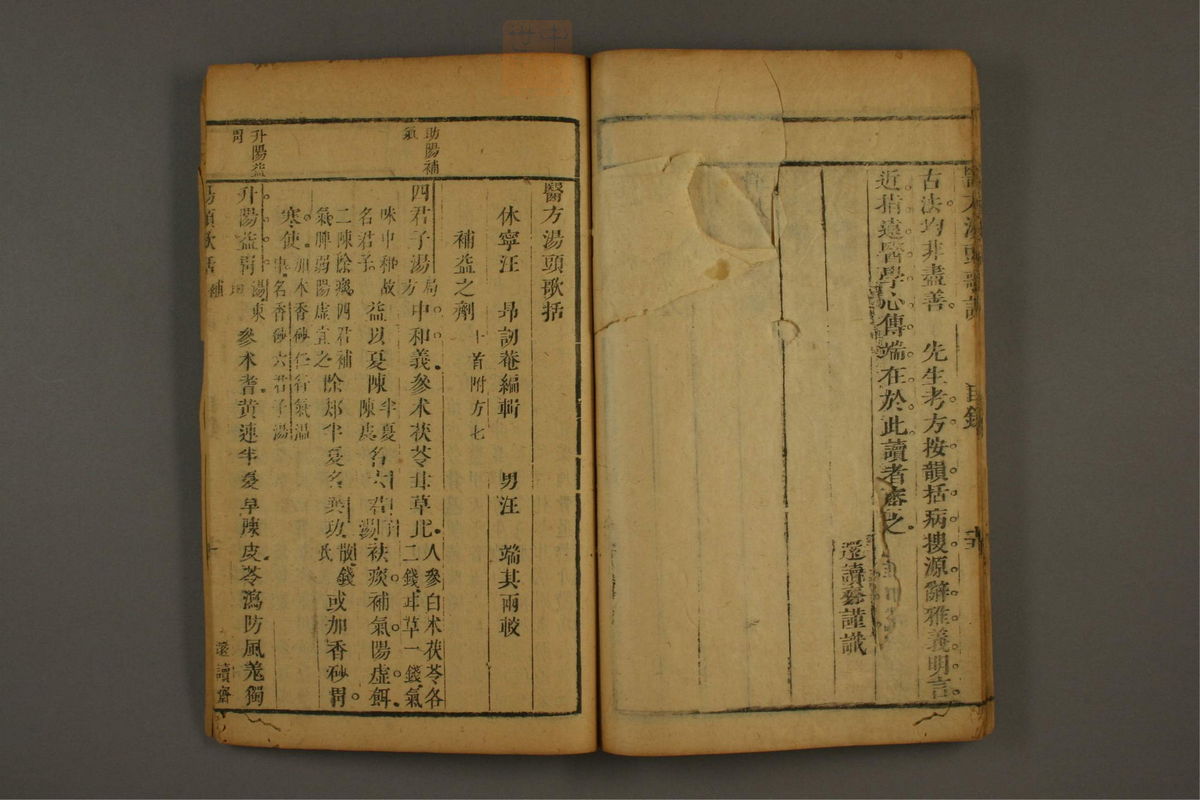 古法均非盡善　先生考方按韻括病搜源辭雅義明言
近指遠醫學心傳端在於此讀者審之
還讀齋謹識
目錄
醫方湯頭歌括
休寧汪　昻訒菴編輯　男汪　端其兩較
補益之劑　十首附方七
助陽補氣
四君子湯　局方　中和義參朮茯苓甘草比　人參白朮茯苓各二錢甘草一錢氣
味中和故名君子　益以夏陳　半夏陳皮　名六君　湯　祛痰補氣陽虛餌
二陳除痰四君補氣脾弱陽虛宜之　除郄半夏名異功　散錢氏　或加香砂胃
寒使　加木香砂仁行氣溫中名香砂六君子湯
升陽益胃
升陽益胃湯東垣　參朮蓍黃連半夏草陳皮苓瀉防風羗獨
湯頭歌括　補　還讀齋